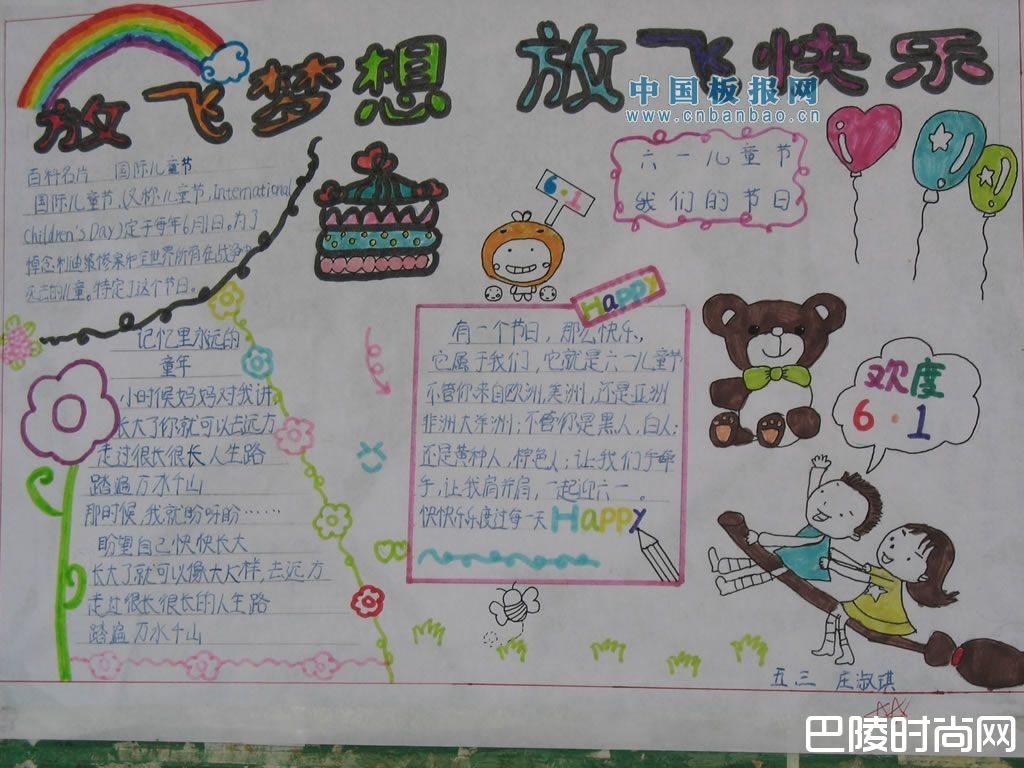 放飞梦想 放飞快乐
中国板报网
www.cnbanbao.cn
百科名片 国际儿童节
国际儿童节,(又称儿童节,International
Children's Day)定于每年6月1日。为了
悼念利迪策惨案和全世界所有在战争中
死去的儿童。特定了这个节日。
6·1
六一儿童节
我们的节日
记忆里永远的
童年
小时候妈妈对我讲
长大了你就可以去远方
走过很长很长人生路
踏遍万水千山
那时候,我就盼呀盼……
盼望自己快快长大
长大了就可以像大人样,去远方
走过很长很长的人生路
踏遍万水千山
Happy
有一个节日,那么快乐,
它属于我们,它就是六一儿童节
不管你来自欧洲,美洲,还是亚洲
非洲大洋洲;不管你是黑人,白人;
还是黄种人,棕色人;让我们手牵
手,让我肩并肩,一起迎六一。
快快乐乐度过每一天 Happy
欢度
6·1
五三 庄淑琪
巴陵时尚网